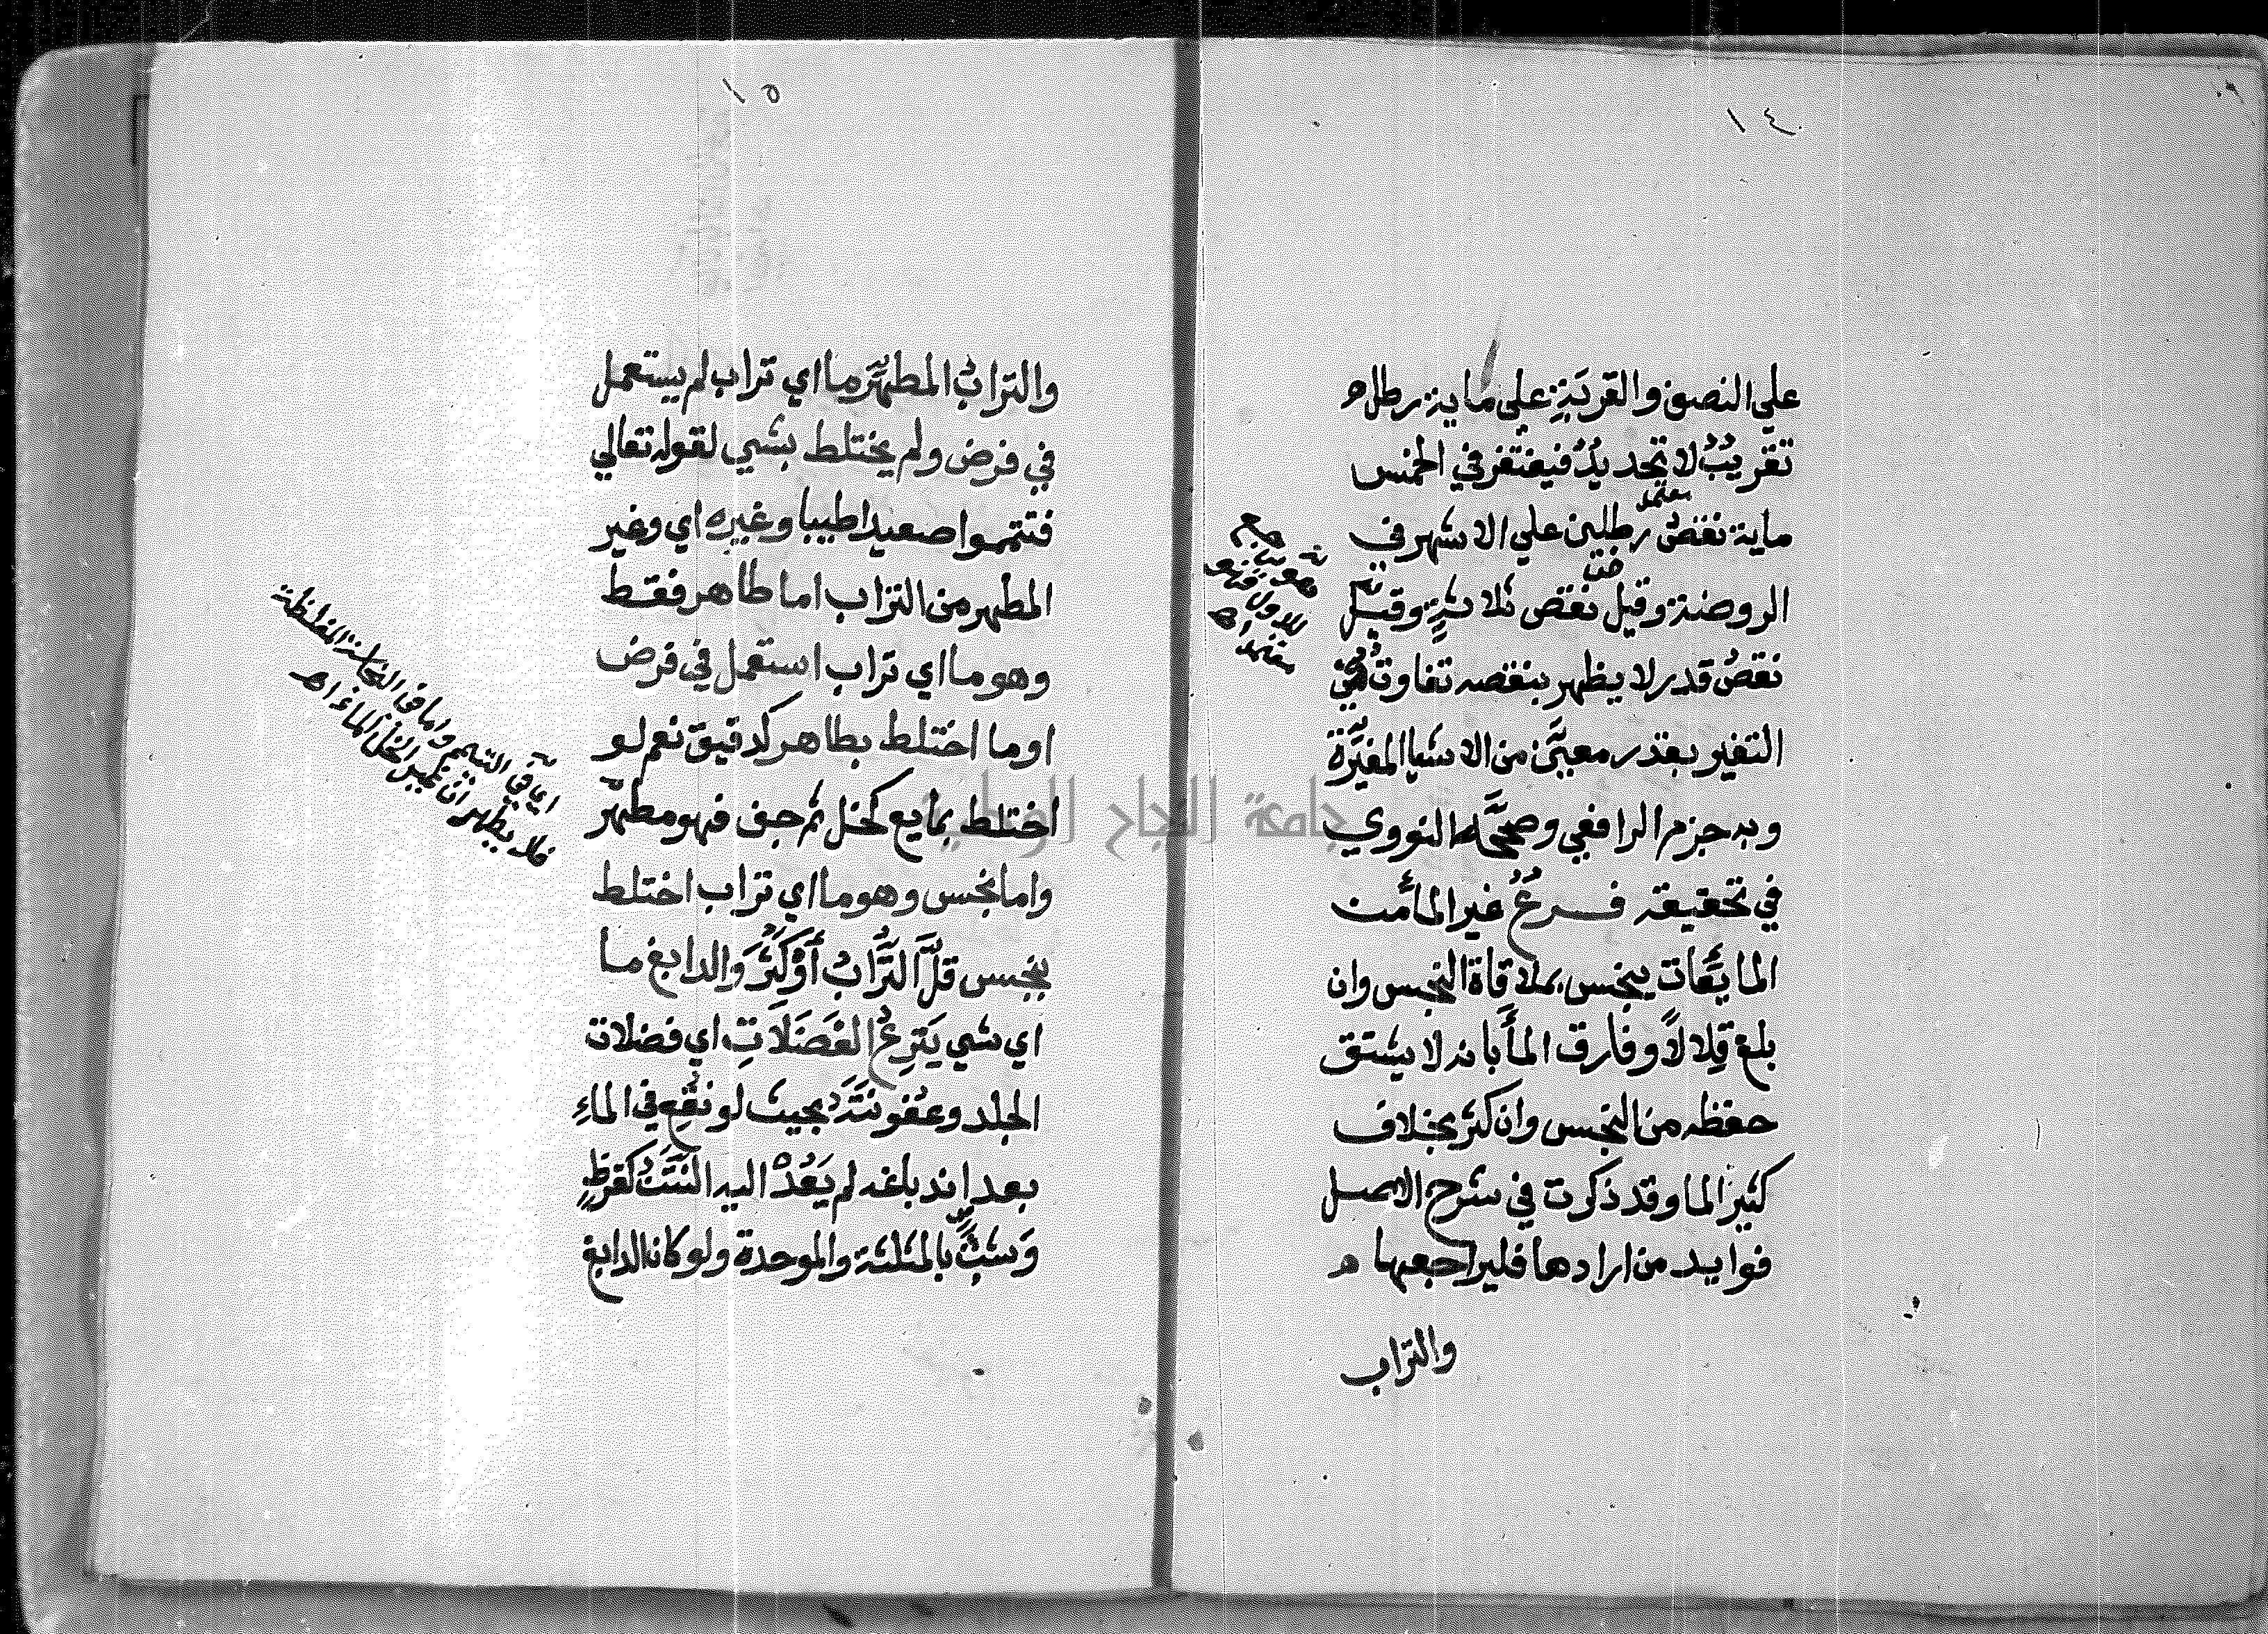 ١٤
علي النصف والقربَةِ علي ماية رطل م
تقريبٌ لا تحديدٌ فيغتفر في الخمس
معتمد
ماية نقصُ رطلين علي الاشهر في
الروضة وقيل نقص ثلاثةٍ وقيل
نقصُ قدر لا يظهر بنقصه تفاوتٌ في
التغير بقدر معيَّن من الاشيا المغيِّرة
وبه جزم الرافعي وصحَّحه النووي
في تحقيقه فرعٌ غير المأ من
المايعَات ينجس بملاقاة النجس وان
بلغ قِلالاً وفارق المأ بانه لا يشق
حفظه من النجس وان كثر بخلاف
كثير الما وقد ذكرت في شرح الاصل
فوايد من ارادها فليراجعها م
والتراب
١٥
والترابُ المطهِّر ما اي تراب لم يستعمل
في فرض ولم يختلط بشي لقوله تعالي
فتيمموا صعيدا طيبا وغيره اي وغير
المطهر من التراب اما طاهر فقط
وهو ما اي تراب استعمل في فرض
او ما اختلط بطاهر كدقيق نعم لو
اختلط بمايع كخل ثم جف فهو مطهّر
واما نجس وهو ما اي تراب اختلط
بنجس قلَّ التُّرابُ أوْ كَثُرَ والدابغ ما
اي شي يَنزِعُ الفَضَلَاتِ اي فضلات
الجلد وعفونتَهُ بحيث لو نُقِعَ في الماءِ
بعد اندباغه لم يَعُدْ اليه النَّتَنُ كقرظٍ
وَشَبٍّ بالمثلثة والموحدة ولو كان الدابغ
اي في التيمم واما في النجاسة المغلظة
فلا يطهر